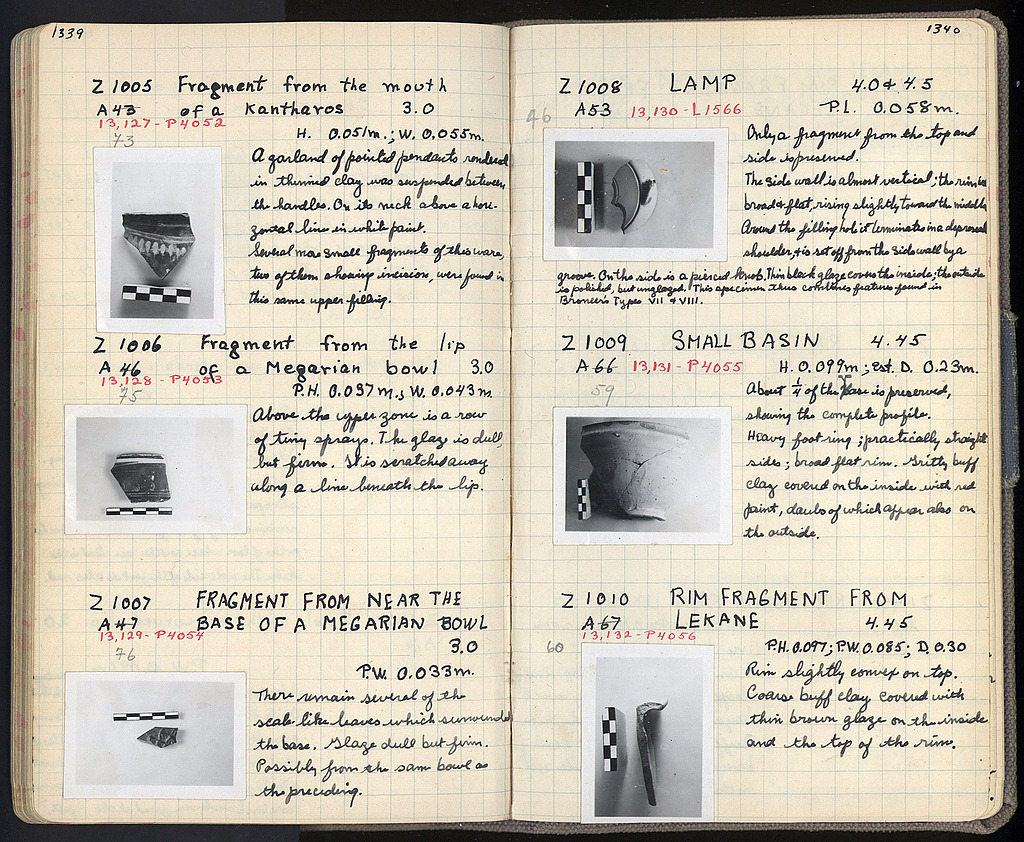 1339
Z 1005 Fragment from the mouth
A43 of a Kantharos 3.0
13,127 - P4052
73
H. 0.051m.; W. 0.055m.
A garland of pointed pendants rendered
in thinned clay was suspended between
the handles. On its neck above a hori-
zontal line in white paint.
Several more small fragments of this ware,
two of them showing incision, were found in
this same upper filling.
Z 1006 Fragment from the lip
A 46 of a Megarian bowl 3.0
13,128 - P4053
75
P.H. 0.037m.; W. 0.043m.
Above the upper zone is a row
of tiny sprays. The glaze is dull
but firm. It is scratched away
along a line beneath the lip.
Z 1007 FRAGMENT FROM NEAR THE
A47 BASE OF A MEGARIAN BOWL
13,129 - P4054
3.0
76
P.W. 0.033m.
There remain several of the
scale-like leaves which surrounded
the base. Glaze dull but firm.
Possibly from the same bowl as
the preceding.
1340
Z 1008 LAMP 4.0 & 4.5
46 A53 13,130 - L1566 P.L. 0.058m.
Only a fragment from the top and
side is preserved.
The side wall is almost vertical; the rim is
broad & flat, rising slightly toward the middle.
Around the filling hole it terminates in a depressed
shoulder, & is set off from the side wall by a
groove. On the side is a pierced knob. Thin black glaze covers the inside; the outside
is polished, but unglazed. This specimen thus combines features found in
Broneer's Types VII & VIII.
Z 1009 SMALL BASIN 4.45
A66 13,131 - P4055 H. 0.099m; est. D. 0.23m.
59
About ¼ of the base is preserved,
showing the complete profile.
Heavy foot ring; practically straight
sides; broad flat rim. Gritty buff
clay covered on the inside with red
paint, daubs of which appear also on
the outside.
Z 1010 RIM FRAGMENT FROM
A67 LEKANE 4.45
13,132 - P4056
60
P.H. 0.097; P.W. 0.085; D. 0.30
Rim slightly convex on top.
Coarse buff clay covered with
thin brown glaze on the inside
and the top of the rim.